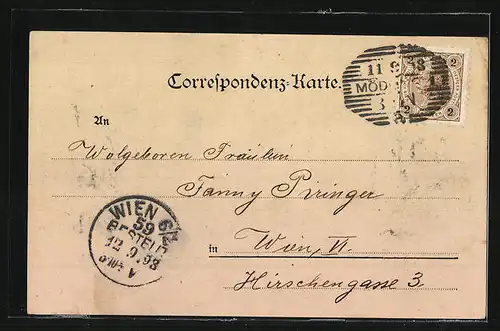 11 9 98
MÖD
2
2
2
Correspondenz-Karte.
An
Wolgeboren Fräulein
Fanny Piringer
WIEN 6/2
59
BESTELLT
12.9.98
in Wien, VI.
Hirschengasse 3